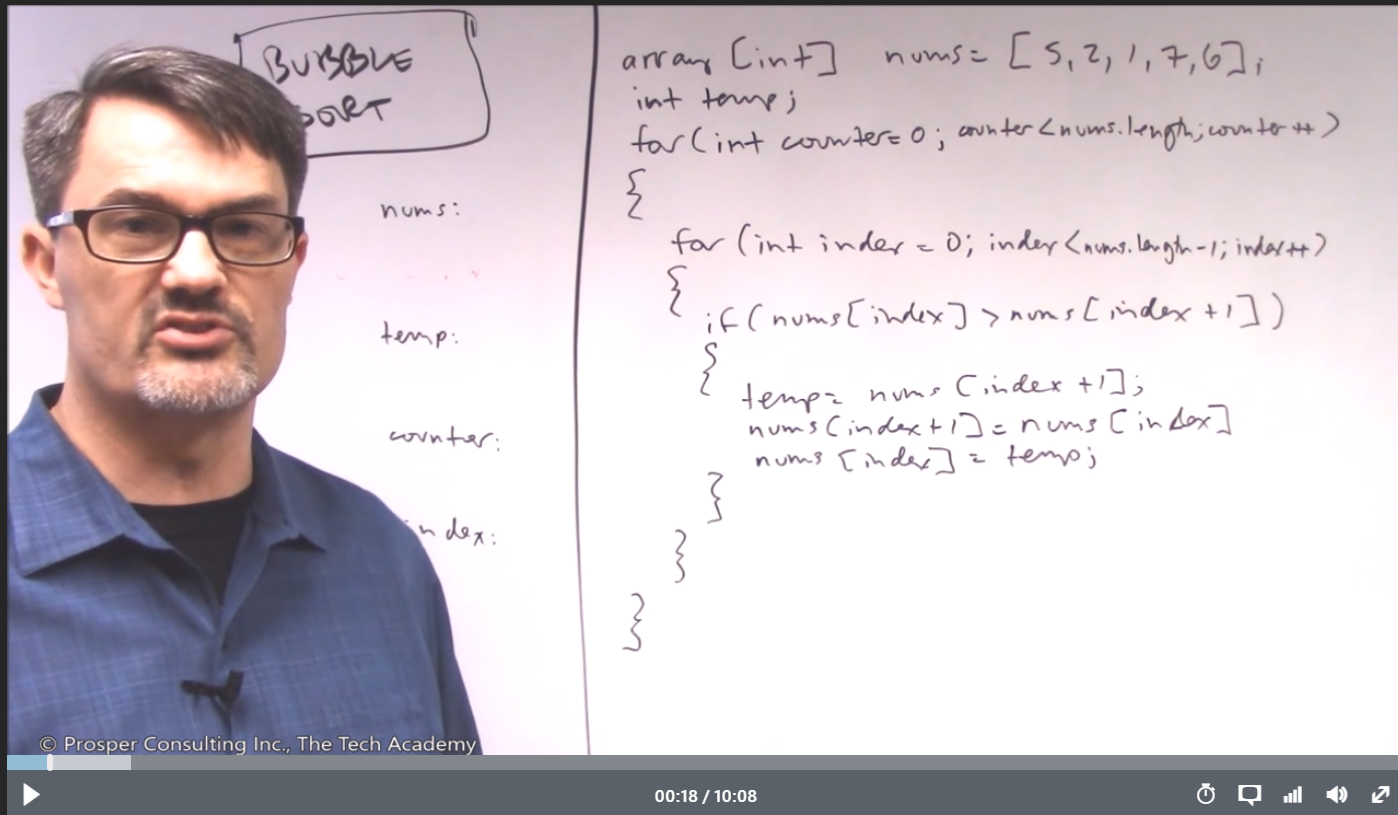 BUBBLE
SORT
nums:
temp:
counter:
index:
array [int] nums = [5, 2, 1, 7, 6];
int temp;
for (int counter = 0; counter < nums.length; counter ++)
{
for (int index = 0; index < nums.length - 1; index ++)
{
if (nums [index] > nums [index + 1])
{
temp = nums [index + 1];
nums [index + 1] = nums [index]
nums [index] = temp;
}
}
}
© Prosper Consulting Inc., The Tech Academy
00:18 / 10:08